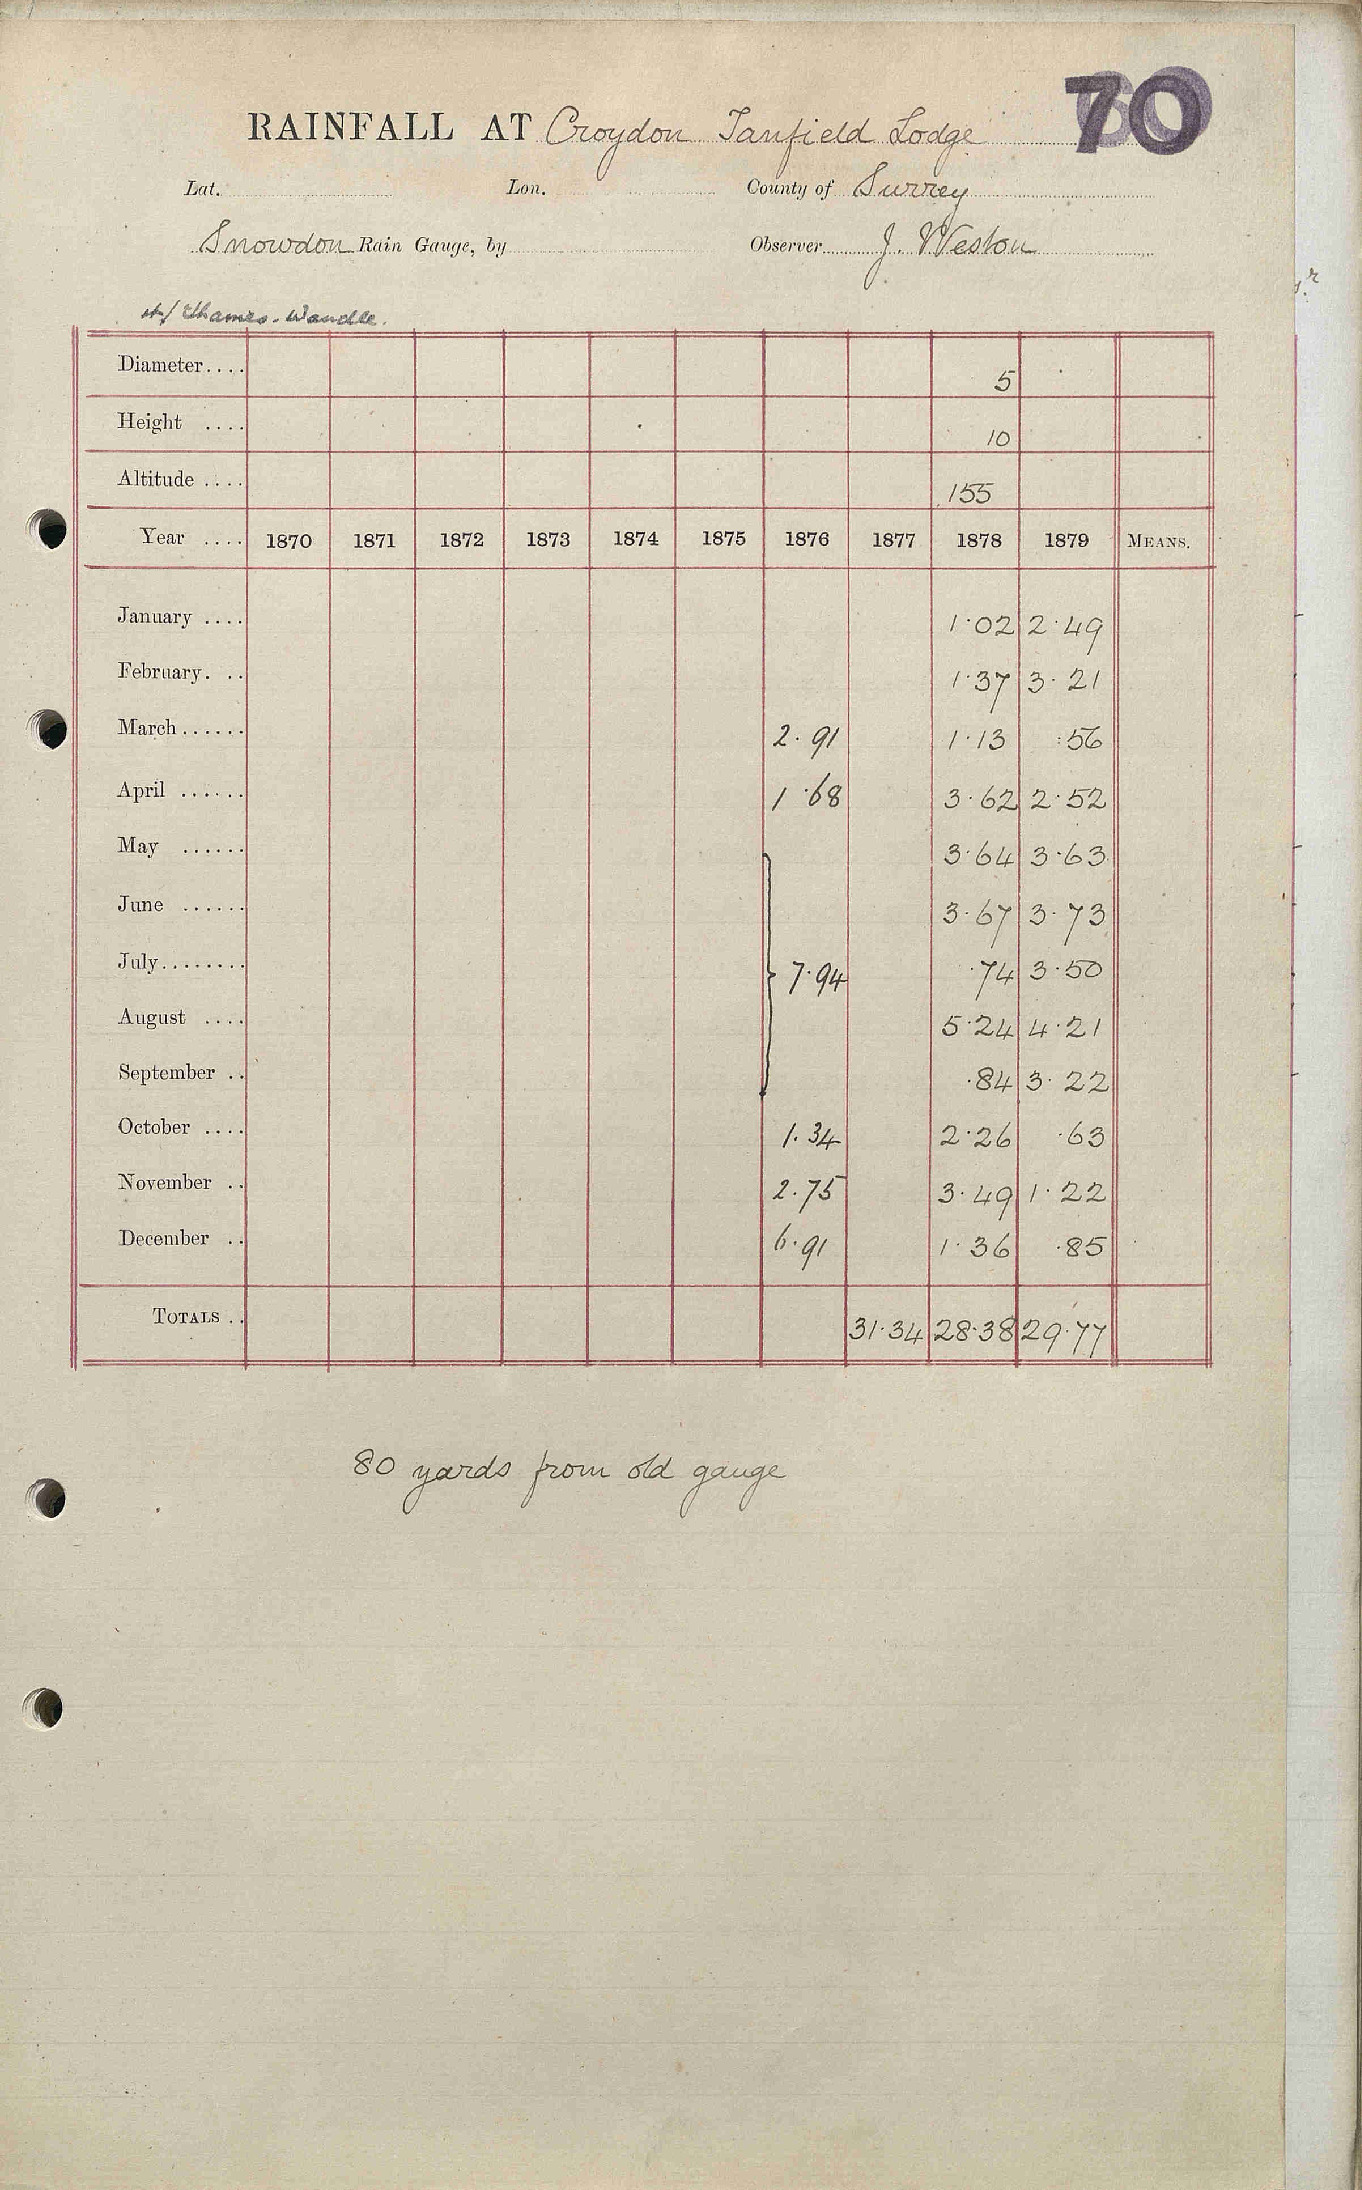 70
RAINFALL AT Croydon Tanfield Lodge
Lat. Lon. County of Surrey
Snowdon Rain Gauge, by Observer J. Weston
Thames. Wandle.
Diameter.... 5
Height .... 10
Altitude .... 155
Year .... 1870 1871 1872 1873 1874 1875 1876 1877 1878 1879 MEANS.
January .... 1.02 2.49
February. .. 1.37 3.21
March...... 2.91 1.13 .56
April ...... 1.68 3.62 2.52
May ...... 3.64 3.63
June ...... 3.67 3.73
July........ 7.94 .74 3.50
August .... 5.24 4.21
September .. .84 3.22
October .... 1.34 2.26 .63
November .. 2.75 3.49 1.22
December .. 6.91 1.36 .85
TOTALS .. 31.34 28.38 29.77
80 yards from old gauge